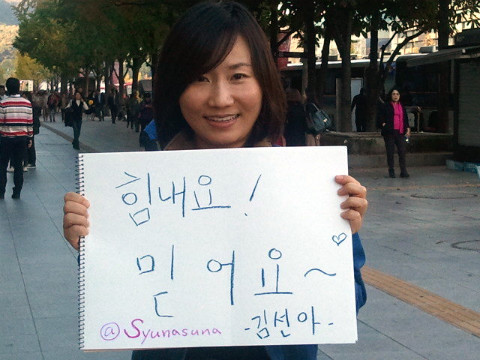 힘내요!
믿어요~♡
@Syunasuna -김선아-